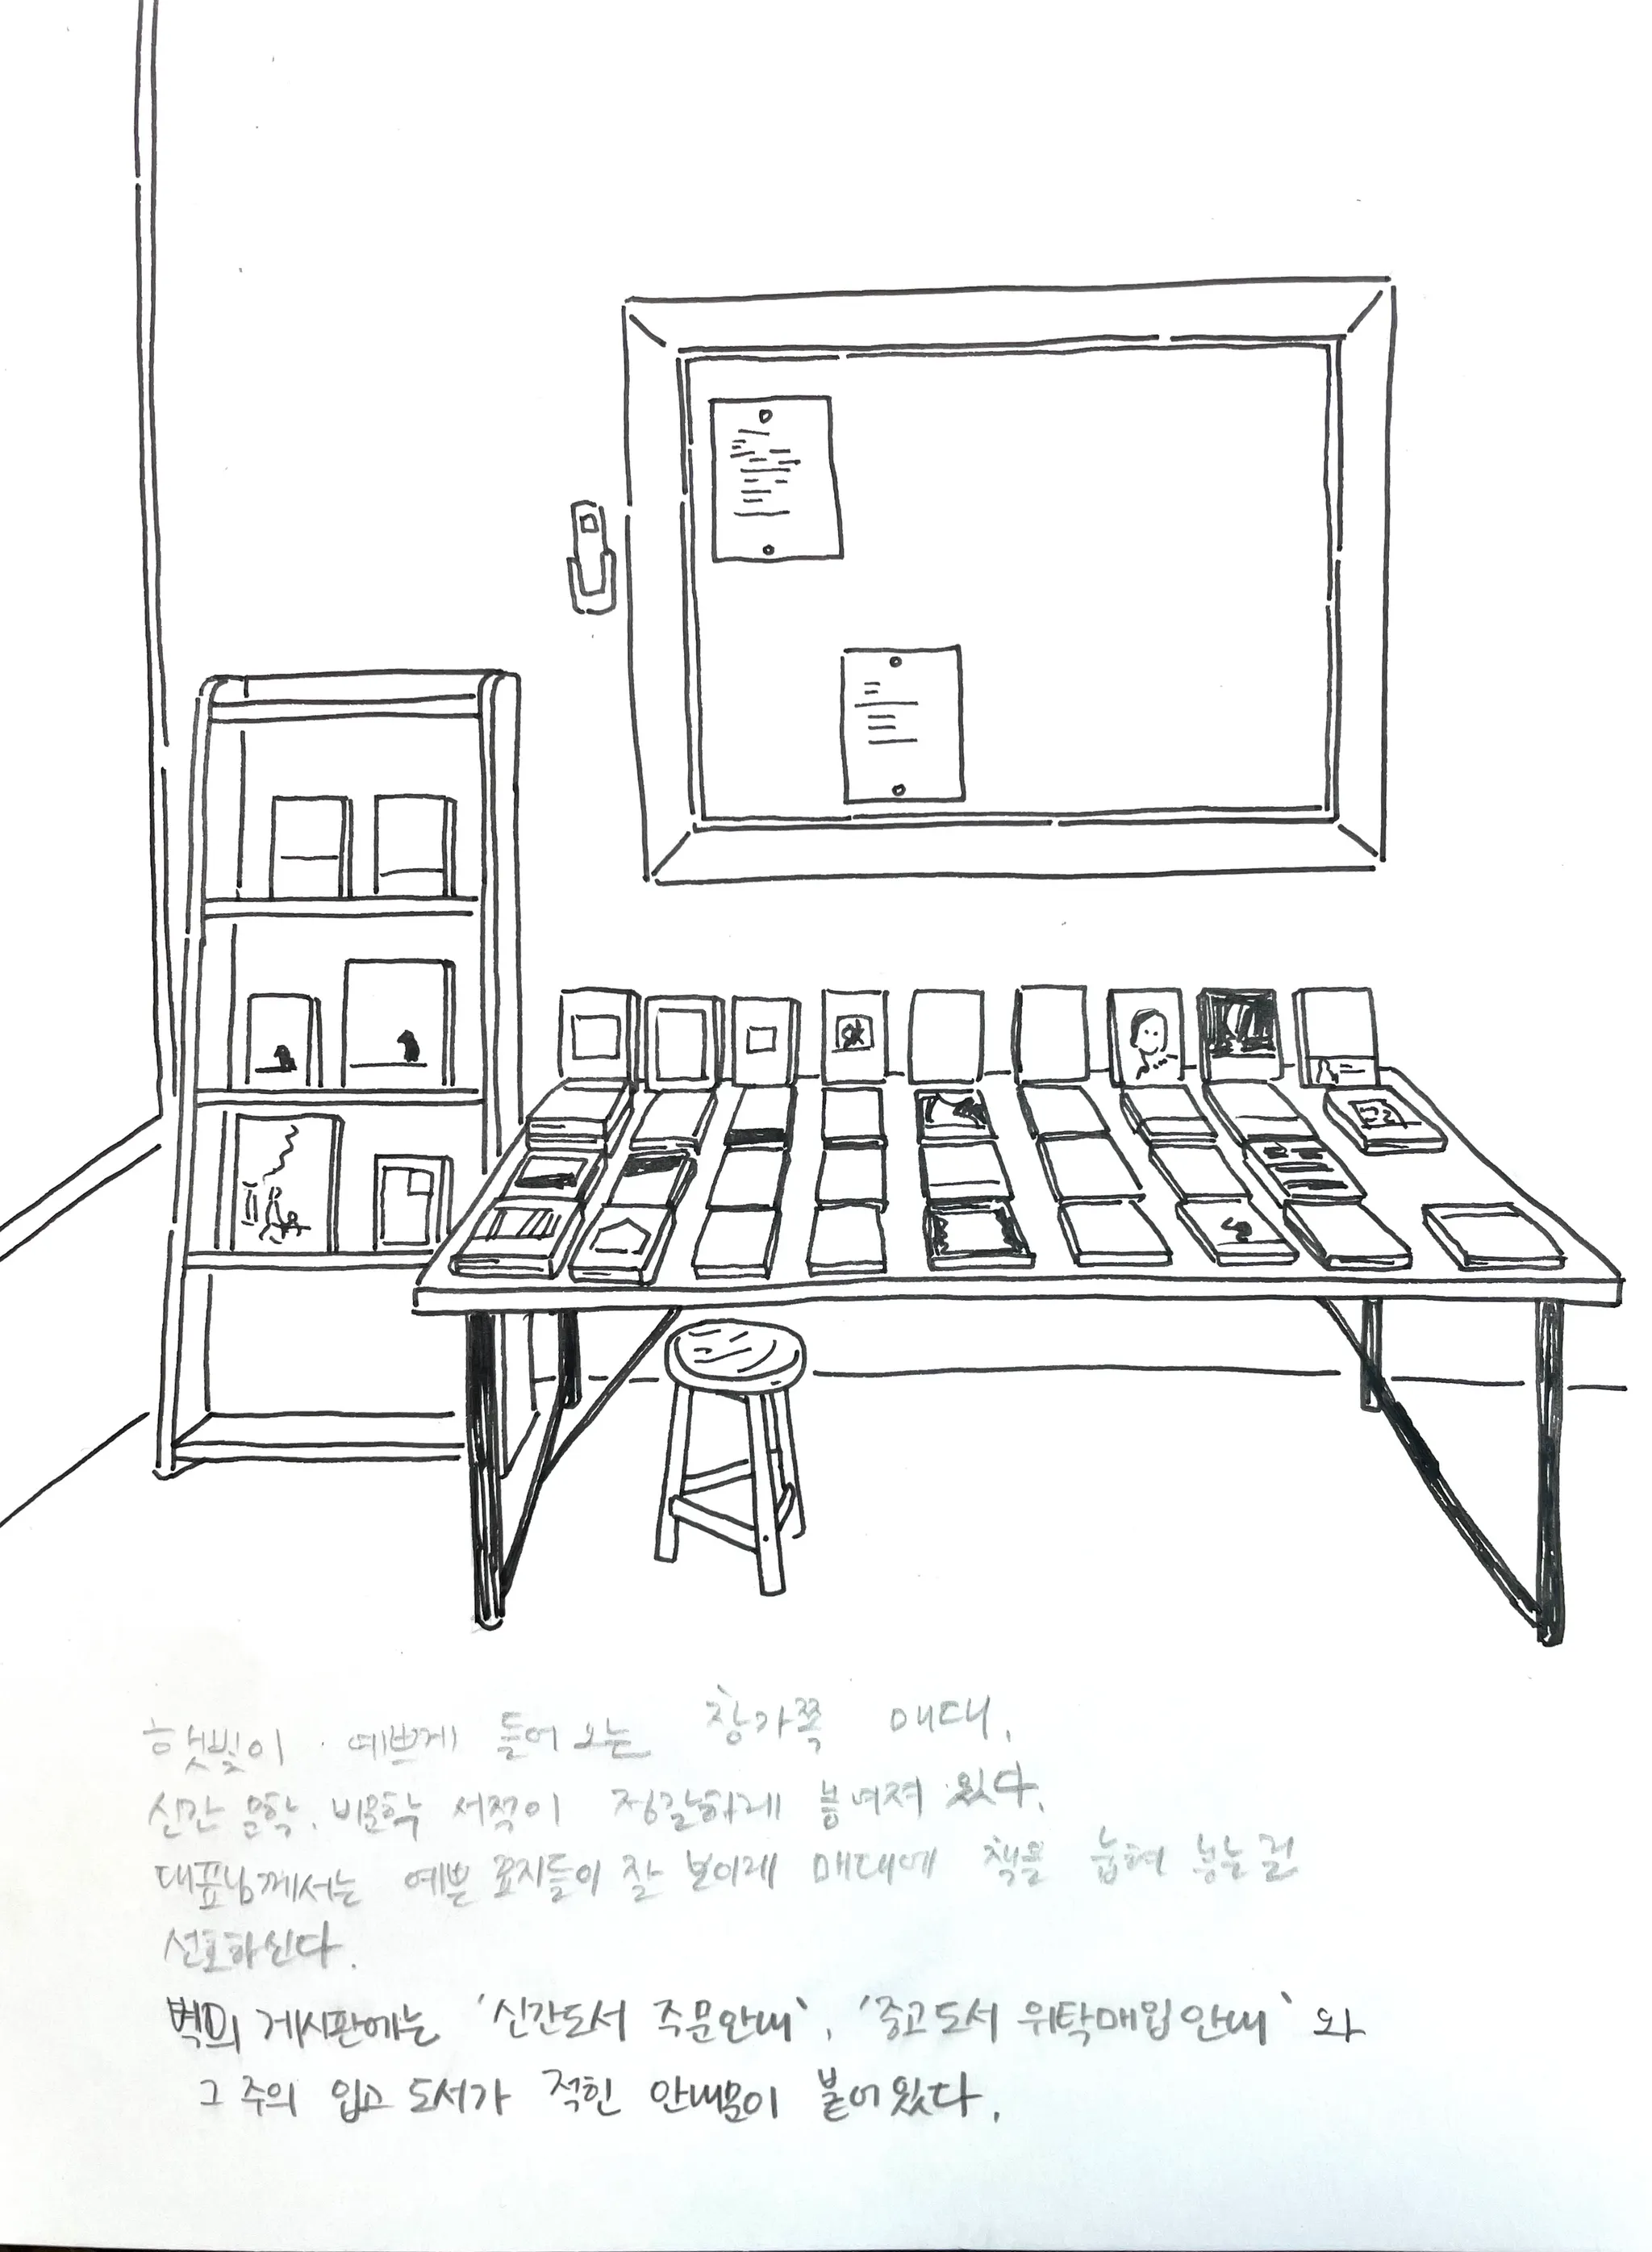 햇빛이 예쁘게 들어오는 창가쪽 매대.
신간 문학, 비문학 서적이 정갈하게 놓여져 있다.
대표님께서는 예쁜 표지들이 잘 보이게 매대에 책을 눕혀 놓는 걸
선호하신다.
벽의 게시판에는 '신간도서 주문안내', '중고도서 위탁매입안내'와
그 주의 입고 도서가 적힌 안내문이 붙어있다.